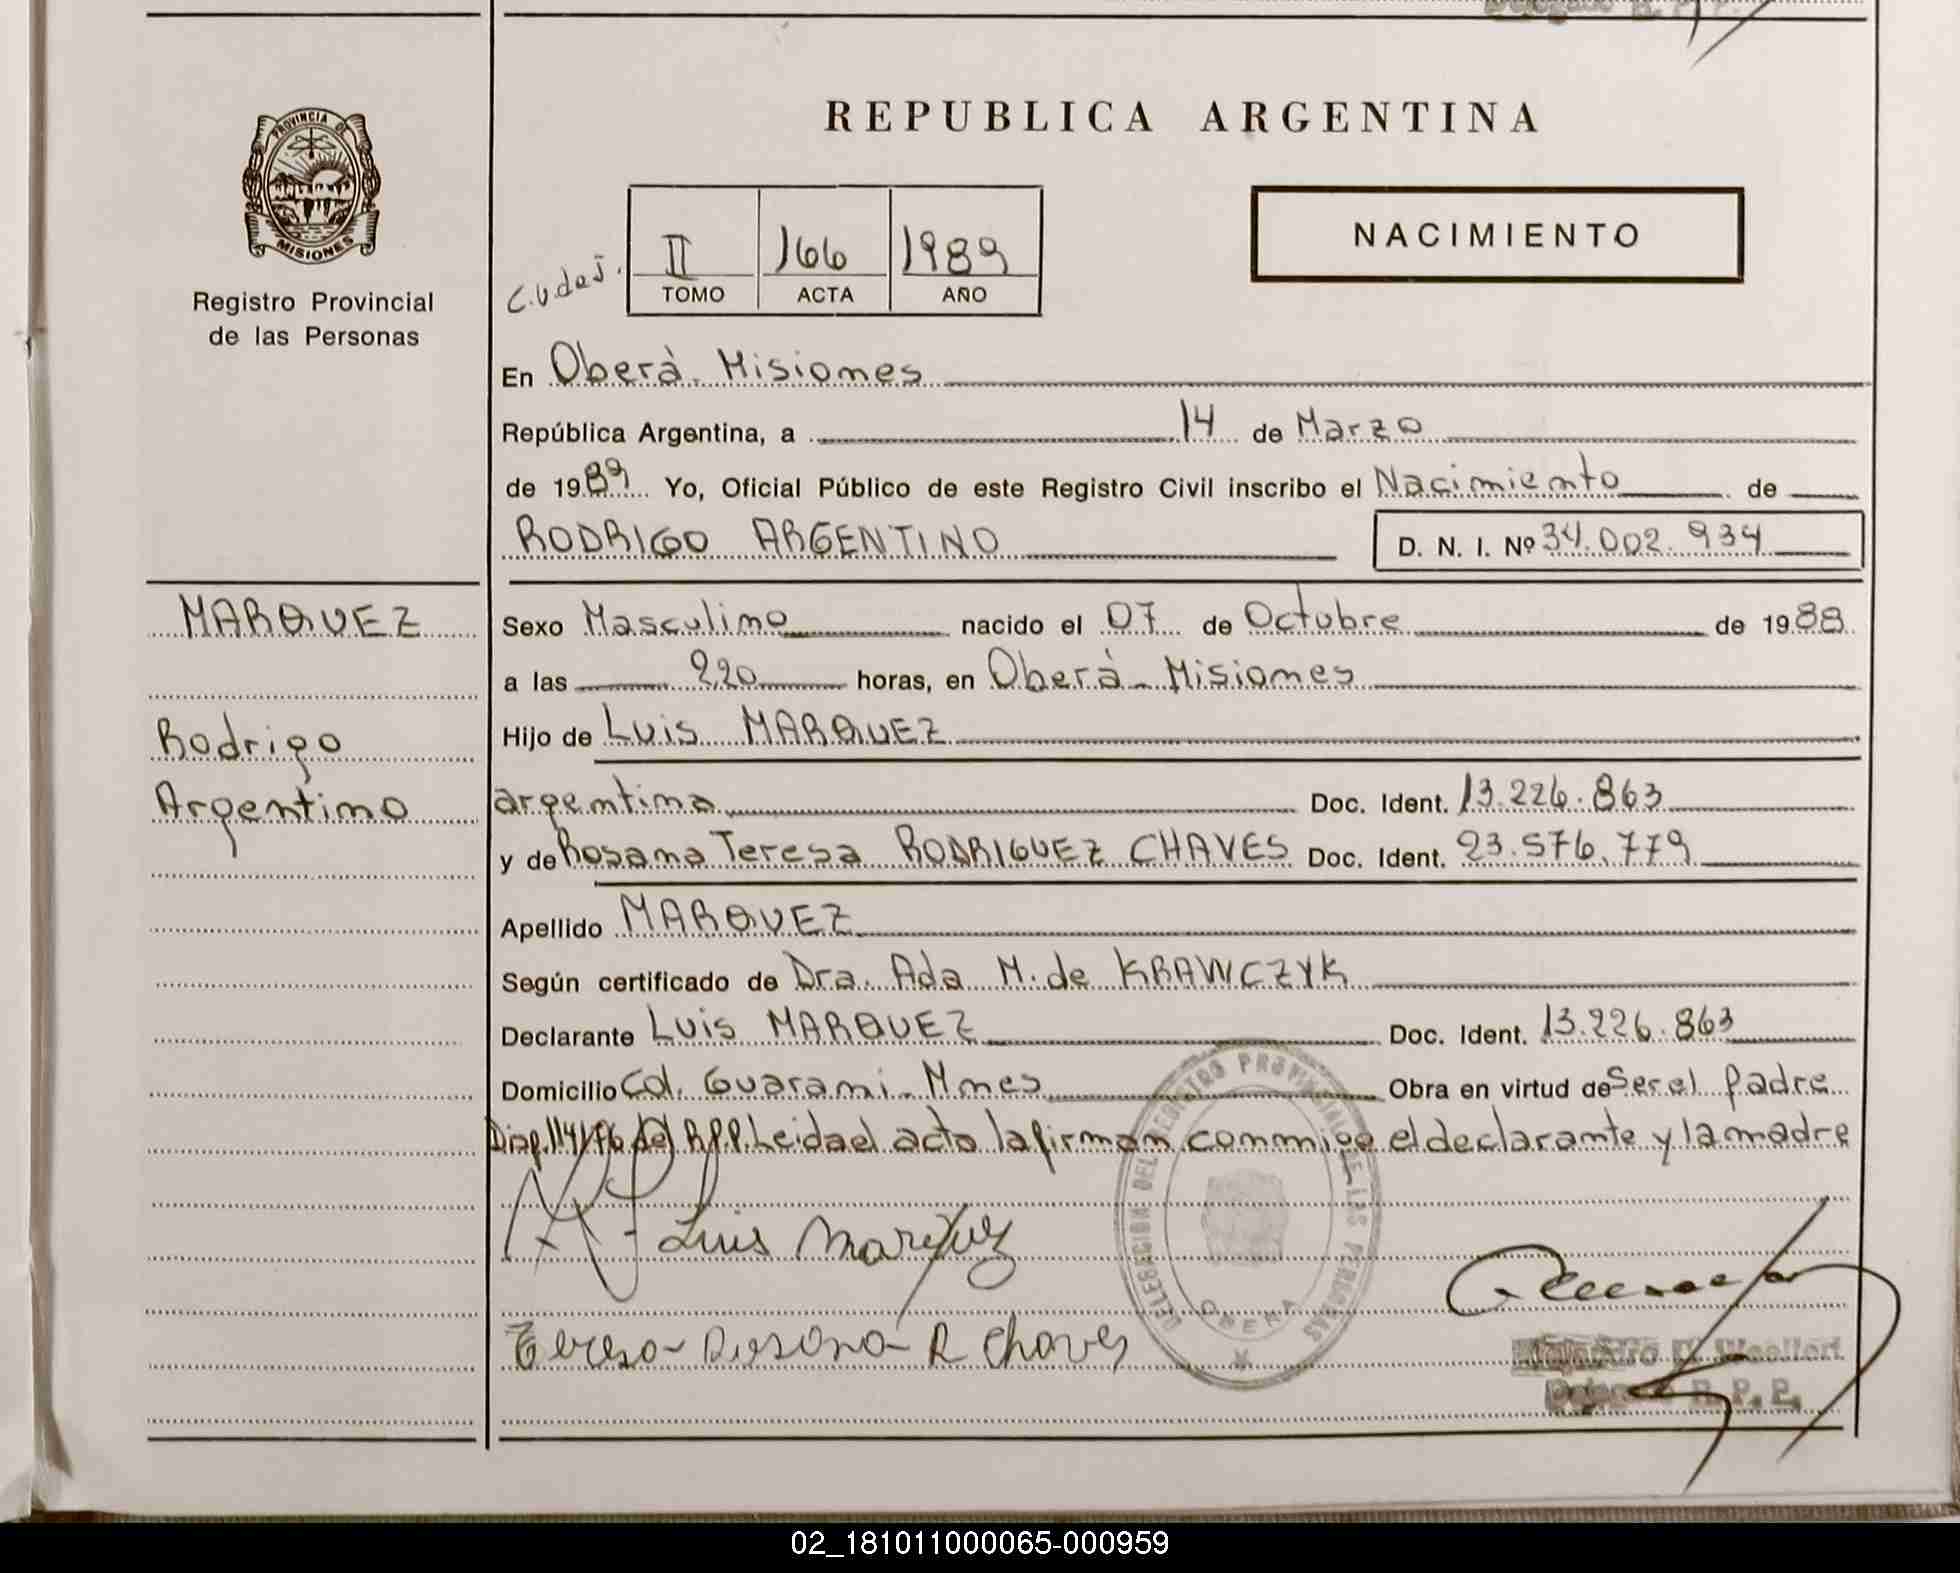 PROVINCIA DE
MISIONES
Registro Provincial
de las Personas
REPUBLICA ARGENTINA
NACIMIENTO
II 166 1989
TOMO ACTA AÑO
En Oberá. Misiones
República Argentina, a 14 de Marzo
de 1989 Yo, Oficial Público de este Registro Civil inscribo el Nacimiento de
RODRIGO ARGENTINO D. N. I. Nº 34.002.934
MARQUEZ
Rodrigo
Argentino
Sexo Masculino nacido el 07 de Octubre de 1988
a las 2,20 horas, en Oberá - Misiones
Hijo de Luis MARQUEZ
argentina Doc. Ident. 13.226.863
y de Rosana Teresa RODRIGUEZ CHAVES Doc. Ident. 23.576.779
Apellido MARQUEZ
Según certificado de Dra. Ada M. de KRAWCZYK
Declarante Luis MARQUEZ Doc. Ident. 13.226.863
Domicilio Col. Guarani - Mnes Obra en virtud de Ser el padre
Disp. 114/76 del R.P.P. Leida el acto la firman conmigo el declarante y la madre
DELEGACION DEL REGISTRO PROVINCIAL DE LAS PERSONAS
OBERA
Luis Marquez
Teresa Rosana R Chaves
Alejandro
Delegado R. P. P.
02_181011000065-000959